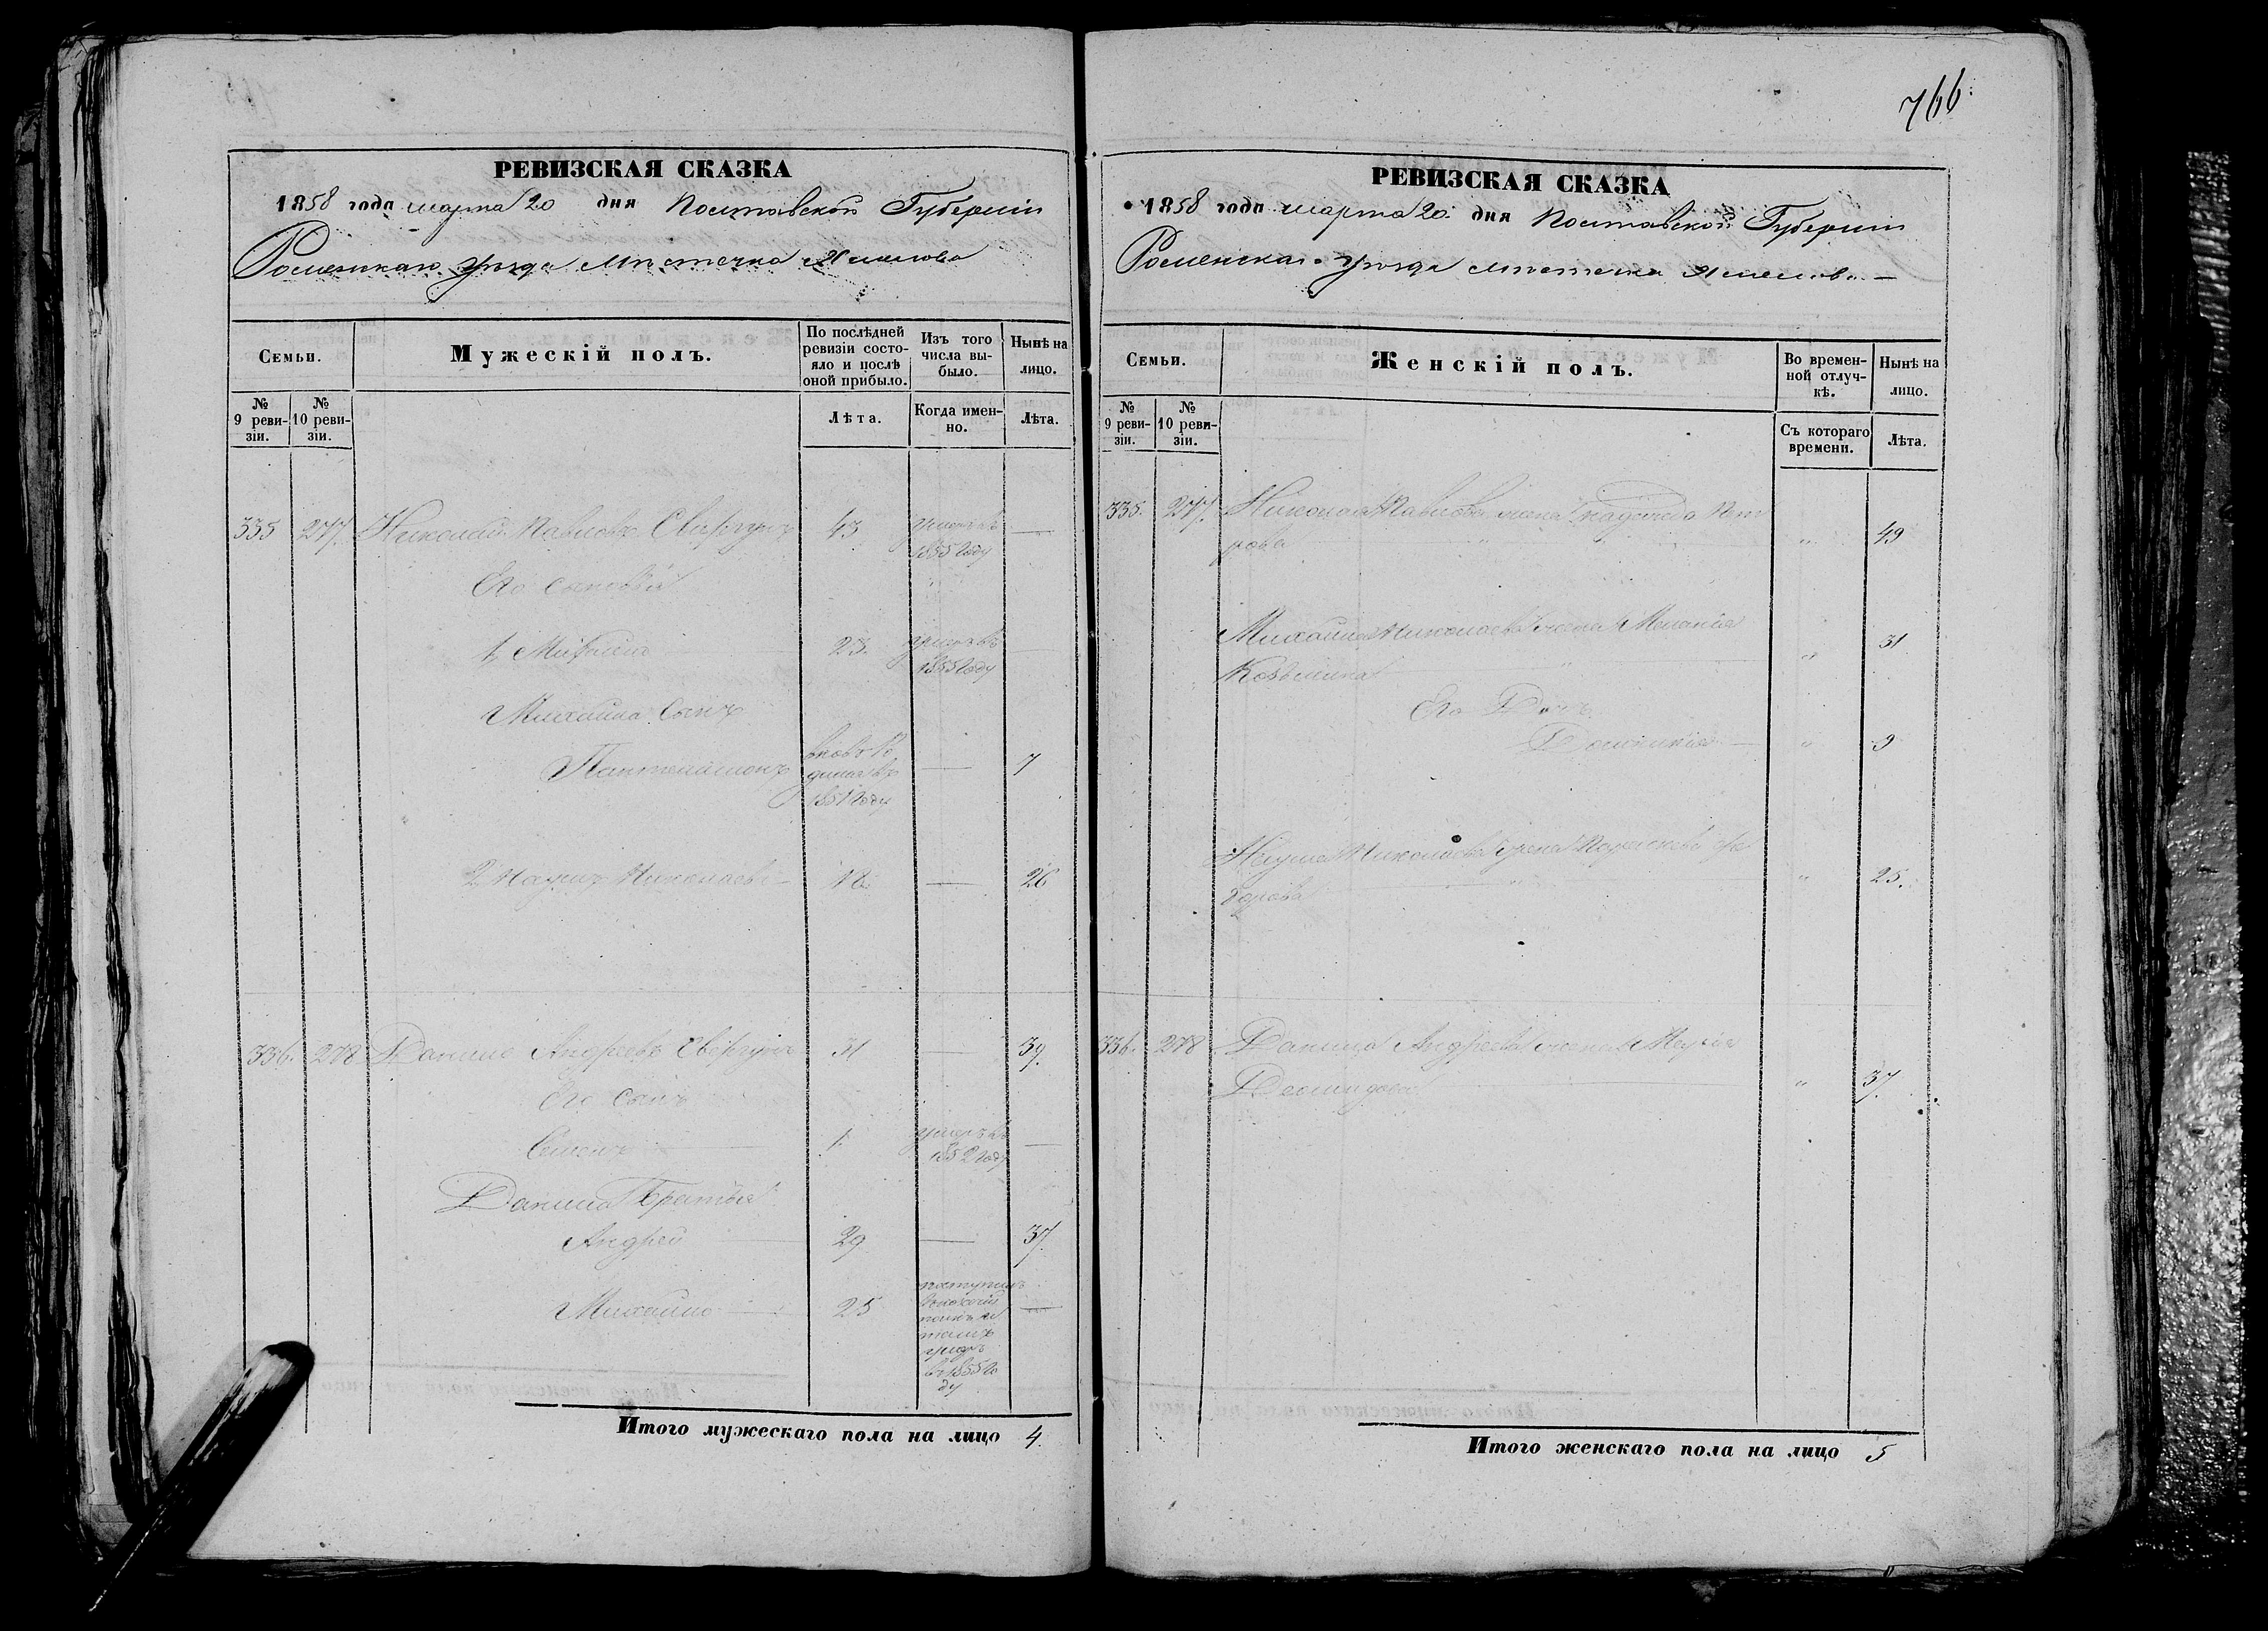 766.
РЕВИЗСКАЯ СКАЗКА
1858 года марта 20 дня Полтавской Губерніи
Роменскаго уѣзда мѣстечка
Семьи.
Мужескій полъ.
По послѣдней ревизіи состояло и послѣ оной прибыло.
Изъ того числа выбыло.
Нынѣ на лицо.
№ 9 ревизіи.
№ 10 ревизіи.
Лѣта.
Когда именно.
Лѣта.
335 277. Николай Павловъ Свергунъ 43 умеръ въ 1855 году —
Его сыновья
1, Михайло 23. умеръ въ 1855 году
Михайла сынъ
Пантелеймонъ 1851 году — 7
2 Наумъ Николаевъ — 18 — 26
336. 278 Данило Андреевъ Свергунъ 31 — 39.
Его сынъ
Семенъ 1. умеръ въ 1852 году —
Данила братья
Андрей 29 — 37.
Михайло 25 поступилъ
въ 1855 го
ду —
Итого мужескаго пола на лицо 4.
РЕВИЗСКАЯ СКАЗКА
1858 года марта 20. дня Полтавской Губерніи
Роменскаго уѣзда мѣстечка
Семьи.
Женскій полъ.
Во временной отлучкѣ.
Нынѣ на лицо.
№ 9 ревизіи.
№ 10 ревизіи.
Съ котораго времени.
Лѣта.
335. 277. Николая Павлова жена Надежда Пет
рова " " 49
Михайла Николаева жена Меланія
Козьмина " " 31
Его Дочь
Домникія — " 9
Наума Николаева жена Параскева
" " 25.
336. 278 Данила Андреева жена Марія
" 37.
Итого женскаго пола на лицо 5